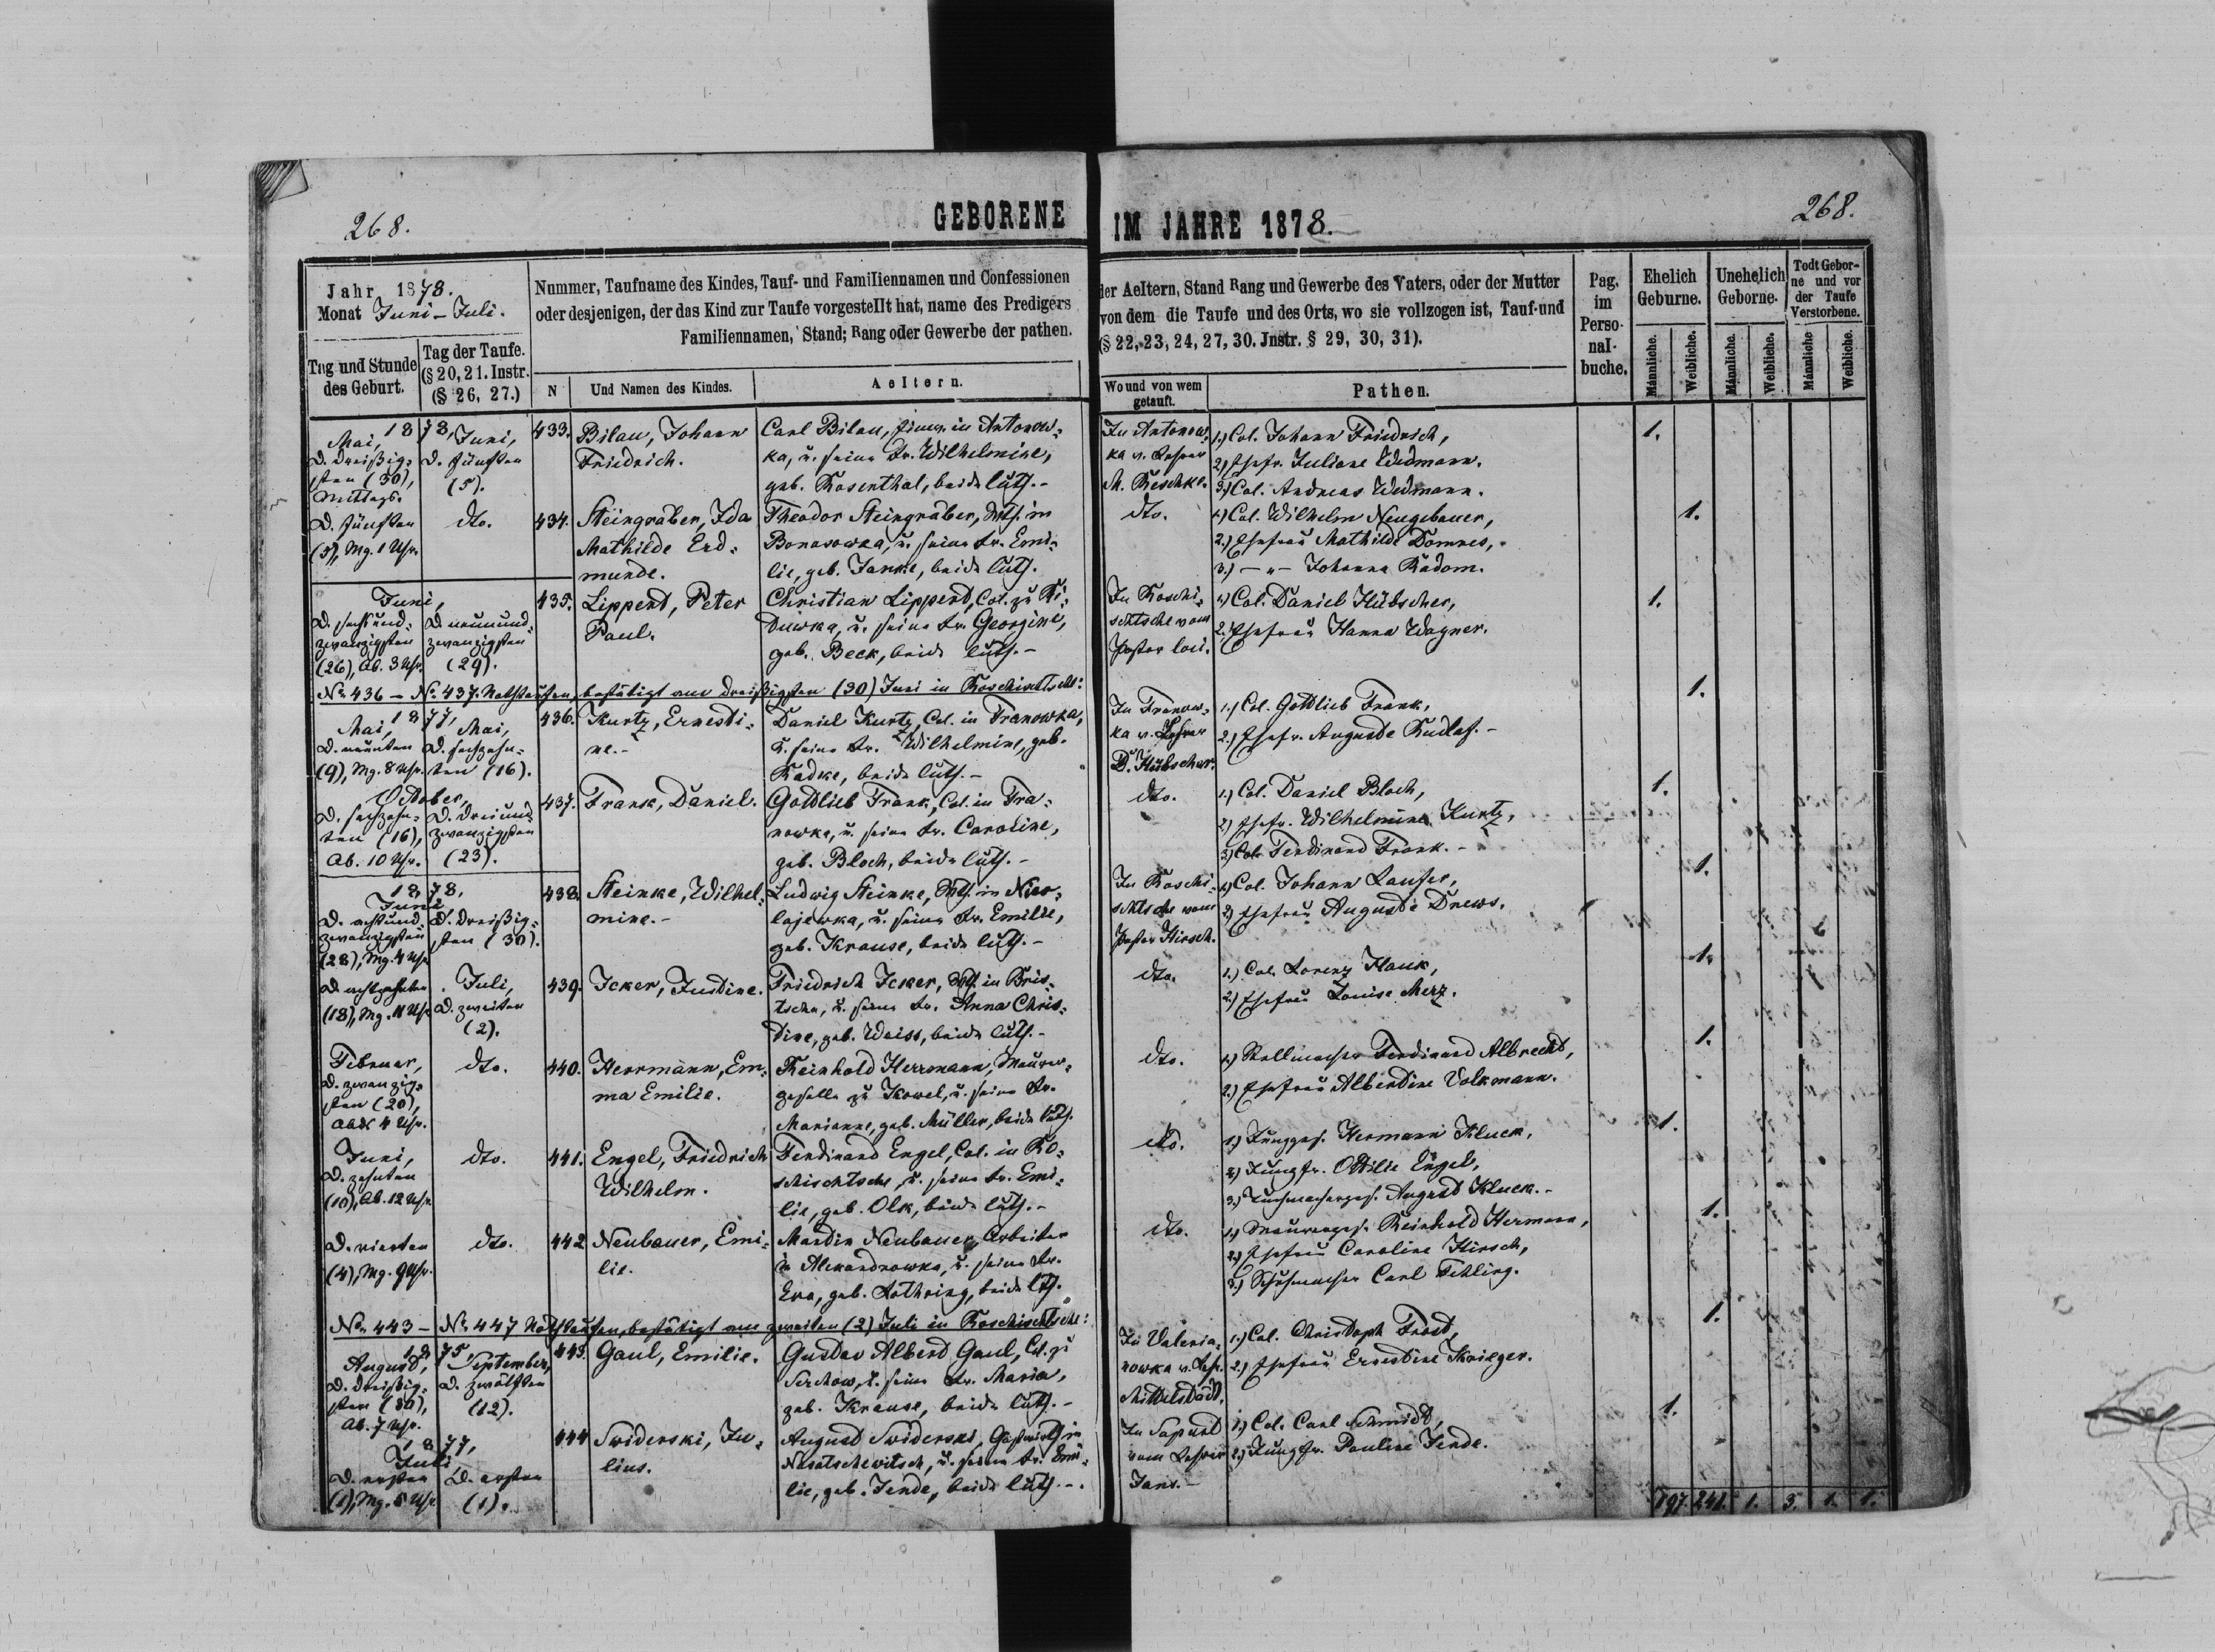 268.
GEBORENE
IM JAHRE 1878.
268.
Jahr 1878.
Monat Juni - Juli.
Tag und Stunde
des Geburt.
Tag der Taufe.
(§ 20, 21. Instr.
(§ 26, 27.)
Nummer, Taufname des Kindes, Tauf- und Familiennamen und Confessionen
oder desjenigen, der das Kind zur Taufe vorgestellt hat, name des Predigers
Familiennamen, Stand; Rang oder Gewerbe der pathen.
N
Und Namen des Kindes.
Aeltern.
der Aeltern, Stand Rang und Gewerbe des Vaters, oder der Mutter
von dem die Taufe und des Orts, wo sie vollzogen ist, Tauf-und
(§ 22, 23, 24, 27, 30. Jnstr. § 29, 30, 31).
Wo und von wem
getauft.
Pathen.
Pag.
im
Perso-
nal-
buche.
Ehelich
Geburne.
Unehelich
Geborne.
Todt Gebor-
ne und vor
der Taufe
Verstorbene.
Männliche.
Weibliche.
Männliche.
Weibliche.
Männliche
Weibliche.
1878,
Mai,
D. dreißig-
sten (30),
Mittags.
Juni,
D. fünften
(5).
433.
Bilau, Johann
Friedrich.
Carl Bilau, in Antonow-
ka, u. seine Fr. Wilhelmine,
geb. Rosenthal, beide luth. -
In Antonow-
ka v. Lehrer
M. Reschke.
1.) Col. Johann Friedrich,
2.) Ehefr. Juliane Wedmann.
3.) Col. Andreas Wedmann.
1.
D. fünften
(5), Mg. 1 Uhr.
dto.
434.
Steingräber, Ida
Mathilde Erd-
munde.
Theodor Steingräber, in
Bonasowka, u. seine Fr. Emi-
lie, geb. Janke, beide luth.
dto.
1.) Col. Wilhelm Neugebauer,
2.) Ehefrau Mathilde Domres,
3.) - " - Johanna Radom.
1.
Juni,
D. sechsund-
zwanzigsten
(26), Ab. 3 Uhr.
D. neunund-
zwanzigsten
(29).
435.
Lippert, Peter
Paul.
Christian Lippert, Col. zu Ki-
duwka, u. seine Fr. Georgine,
geb. Beck, beide luth. -
In Roschi-
schtsche vom
Pastor loci.
1.) Col. Daniel Hübscher,
2. Ehefrau Hanna Wagner.
1.
No. 436 - No. 437. Nothtaufen, bestätigt am dreißigsten (30) Juni in Roschischtsche:
1877,
Mai,
D. neunten
(9), Mg. 8 Uhr.
Mai,
D. sechzehn-
ten (16).
436.
Kurtz, Ernesti-
ne. -
Daniel Kurtz, Col. in Franowka,
u. seine Fr. Wilhelmine, geb.
Radke, beide luth. -
In Franow-
ka v. Lehrer
D. Hübscher.
1.) Col. Gottlieb Frank,
2.) Ehefr. Auguste Rudlaf. -
1.
October,
D. sechzehn-
ten (16),
Ab. 10 Uhr.
D. dreiund-
zwanzigsten
(23).
437.
Frank, Daniel.
Gottlieb Frank, Col. in Fra-
nowka, u. seine Fr. Caroline,
geb. Bloch, beide luth. -
dto.
1.) Col. Daniel Bloch,
2.) Ehefr. Wilhelmine Kurtz,
3.) Col. Ferdinand Frank. -
1.
1878,
Juni
D. achtund-
zwanzigsten
(28), Mg. 4 Uhr.
D. dreißig-
sten (30).
438.
Steinke, Wilhel-
mine. -
Ludwig Steinke, in Nico-
lajewka, u. seine Fr. Emilie,
geb. Krause, beide luth. -
In Roschi-
schtsche vom
Pastor Hirsch.
1.) Col. Johann Laufer,
2.) Ehefrau Auguste Drews.
1.
D. achtzehnten
(18), Mg. 11 Uhr
Juli,
D. zweiten
(2).
439.
Icker, Justine.
Friedrich Icker, in Bris-
tscha, u. seine Fr. Anna Chris-
tine, geb. Weiss, beide luth. -
dto.
1.) Col. Lorenz Hauk,
2.) Ehefrau Louise Merz.
1.
Februar,
D. zwanzig-
sten (20),
Abds 4 Uhr.
dto.
440.
Herrmann, Em-
ma Emilie.
Reinhold Herrmann, Maurer-
geselle zu Kowel, u. seine Fr.
Marianne, geb. Müller, beide luth.
dto.
1.) Stellmacher Ferdinand Albrecht,
2.) Ehefrau Albertine Volkmann.
1.
Juni,
D. zehnten
(10), Ab. 12 Uhr
dto.
441.
Engel, Friedrich
Wilhelm.
Ferdinand Engel, Col. in Ro-
schischtsche, u. seine Fr. Emi-
lie, geb. Olk, beide luth. -
dto.
1.) Jungges. Hermann Kluck,
2.) Jungfr. Ottilie Engel,
3.) Tuchmacherges. August Kluck. -
1.
D. vierten
(4), Mg. 9 Uhr.
dto.
442
Neubauer, Emi-
lie.
Martin Neubauer, Arbeiter
in Alexandrowka, u. seine Fr.
Eva, geb. Lothring, beide lth.
dto.
1.) Maurerges. Reinhold Hermann,
2.) Ehefrau Caroline Hirsch,
3.) Schuhmacher Carl Fehling.
1.
No. 443 - No. 447 Nothtaufen, bestätigt am zweiten (2) Juli in Roschischtsche:
1875,
August,
D. dreißig-
sten (30),
Ab. 7 Uhr.
September,
D. zwölften
(12).
443.
Gaul, Emilie.
Gustav Albert Gaul, Col. zu
Serchow, u. seine Fr. Maria,
geb. Krause, beide luth. -
In Valeria-
nowka v. Lehr.
Mittelstädt.
1.) Col. Christoph Frost,
2.) Ehefrau Ernestine Krieger.
1.
1877,
Juli,
D. ersten
(1), Mg. 5 Uhr
D. ersten
(1).
444
Swiderski, Ju-
lius.
August Swiderski, Gastwirth in
Nesatschewitsch, u. seine Fr. Emi-
lie, geb. Jende, beide luth. -
In Sapust
vom Lehrer
Jans. -
1.) Col. Carl Schmidt,
2.) Jungfr. Pauline Jende.
1.
197. 241. 1. 3. 1. 1.